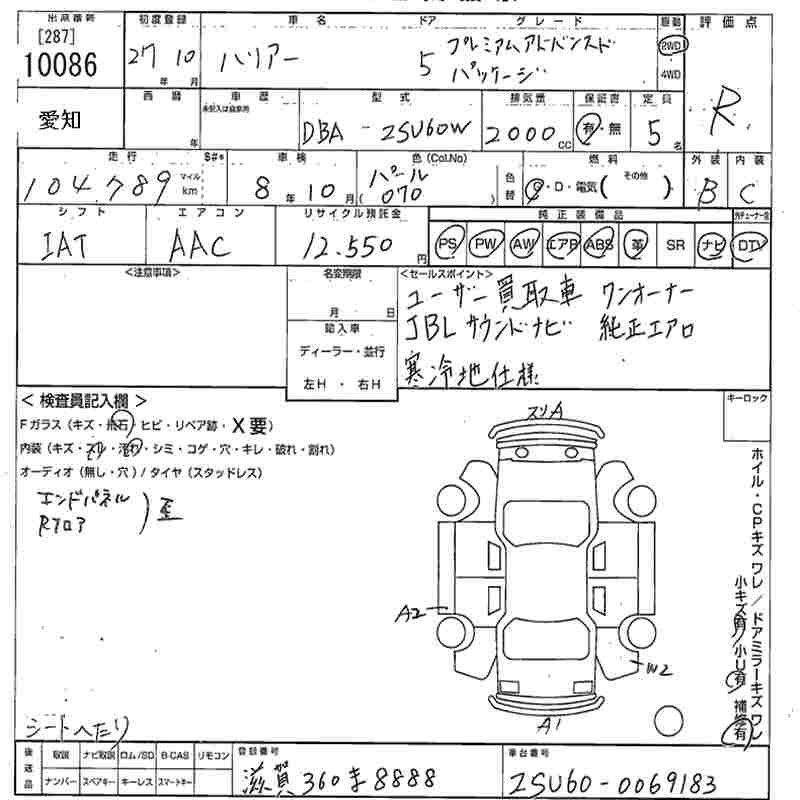 出品番号 初度登録 車名 ドア グレード 駆動 評価点
[287]
10086 27年 10月 ハリアー 5 プレミアムアドバンスド
パッケージ
2WD
4WD
R
愛知
西暦 車歴 型式 排気量 保証書 定員
年 DBA - ZSU60W 2000 CC 有・無 5名
走行 $#* 車検 色(Col.No) 燃料 外装 内装
104,789 マイル km 8年 10月 パール
(070) 色替 G・D・電気( その他 ) B C
シフト エアコン リサイクル預託金 純正装備品
IAT AAC 12,550円 PS PW AW エアB ABS 革 SR ナビ DTV
<注意事項> 名変期限 <セールスポイント>
月 日
輸入車
ディーラー・並行
左H・右H
ユーザー買取車 ワンオーナー
JBLサウンドナビ 純正エアロ
寒冷地仕様
<検査員記入欄> キーロック
Fガラス(キズ・飛石・ヒビ・リペア跡・X要)
内装(キズ・スレ・汚れ・シミ・コゲ・穴・キレ・破れ・割れ)
オーディオ(無し・穴)/タイヤ(スタッドレス)
エンドパネル
Rフロア
)歪
スリA
A2
W2
A1
ホイル・CPキズワレ/ドアミラーキズワレ
小キズ有 小U有 補修有
シートへたり
後送品 取説 ナビ取説 ロム/SD B-CAS リモコン
ナンバー スペアキー キーレス スマートキー
登録番号
滋賀 360ま8888
車台番号
ZSU60-0069183